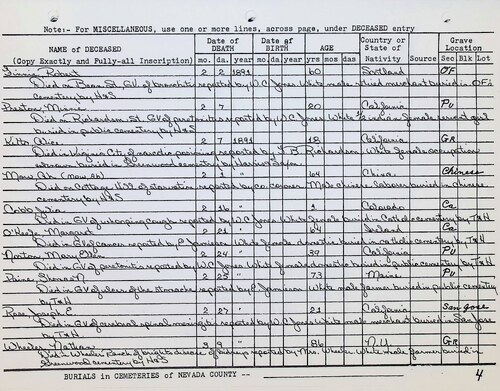 Note:- For MISCELLANEOUS, use one or more lines, across page, under DECEASED entry
NAME of DECEASED
(Copy Exactly and Fully-all Inscription)
Date of DEATH
mo. da. year
Date of BIRTH
mo. da. year
AGE
yrs mos da.
Country or State of Nativity
Source
Grave Location
Sec Blk Lot
Robert 2 2 1891 60 OF
Died on Bean St, GV of bronchitis reported by W.C. Jones White male retired merchant buried in OF
cemetery by H&S
Preston, Minnie 2 7 " 20 California Pu
Died on Richardson St. GV of reported by W.C. Jones White 1/2 indian female
buried in public cemetery by H&S
Kitts, Alice 2 7 1891 18 California GR
Died in Virginia City of reported by Richardson White female
buried in Greenwood cemetery by
Mary Ah (Mary, Ah) 2 1 " 64 China Chinese
Died on Cottage Hill of starvation reported by co. coroner Male chinese laborer buried in chinese
cemetery by H&S
Cobb, Julia 2 16 " 1 Colorado Ca
Died in GV of whooping cough reported by W.C. Jones White female buried in Catholic cemetery by T&H
O'Keefe, Margaret 2 21 " 64 Ireland Ca
Died in GV of cancer reported by P. Jamieson White female domestic buried in catholic cemetery by T&H
Norton, Mary Ellen 2 24 " 39 California Pu
Died in GV of peritonitis reported by W.C. Jones White female domestic buried in public cemetery by T&H
Paine, Thomas N. 2 25 " 73 Maine Pu
Died in GV of ulcer of the stomach reported by P. Jamieson White male farmer buried in public cemetery
by T&H
Rose, Joseph E. 2 " 21 California San Jose
Died in GV of cerebral spinal meningitis reported by W.C. Jones White male merchant buried in San Jose
by T&H
Wheeler, Nathan 3 9 " 86 N.Y. GR
Died Wheeler Ranch of brights disease of kidneys reported by Mrs. Wheeler White male farmer buried in
Greenwood cemetery by H&S
BURIALS in CEMETERIES of NEVADA COUNTY --
4